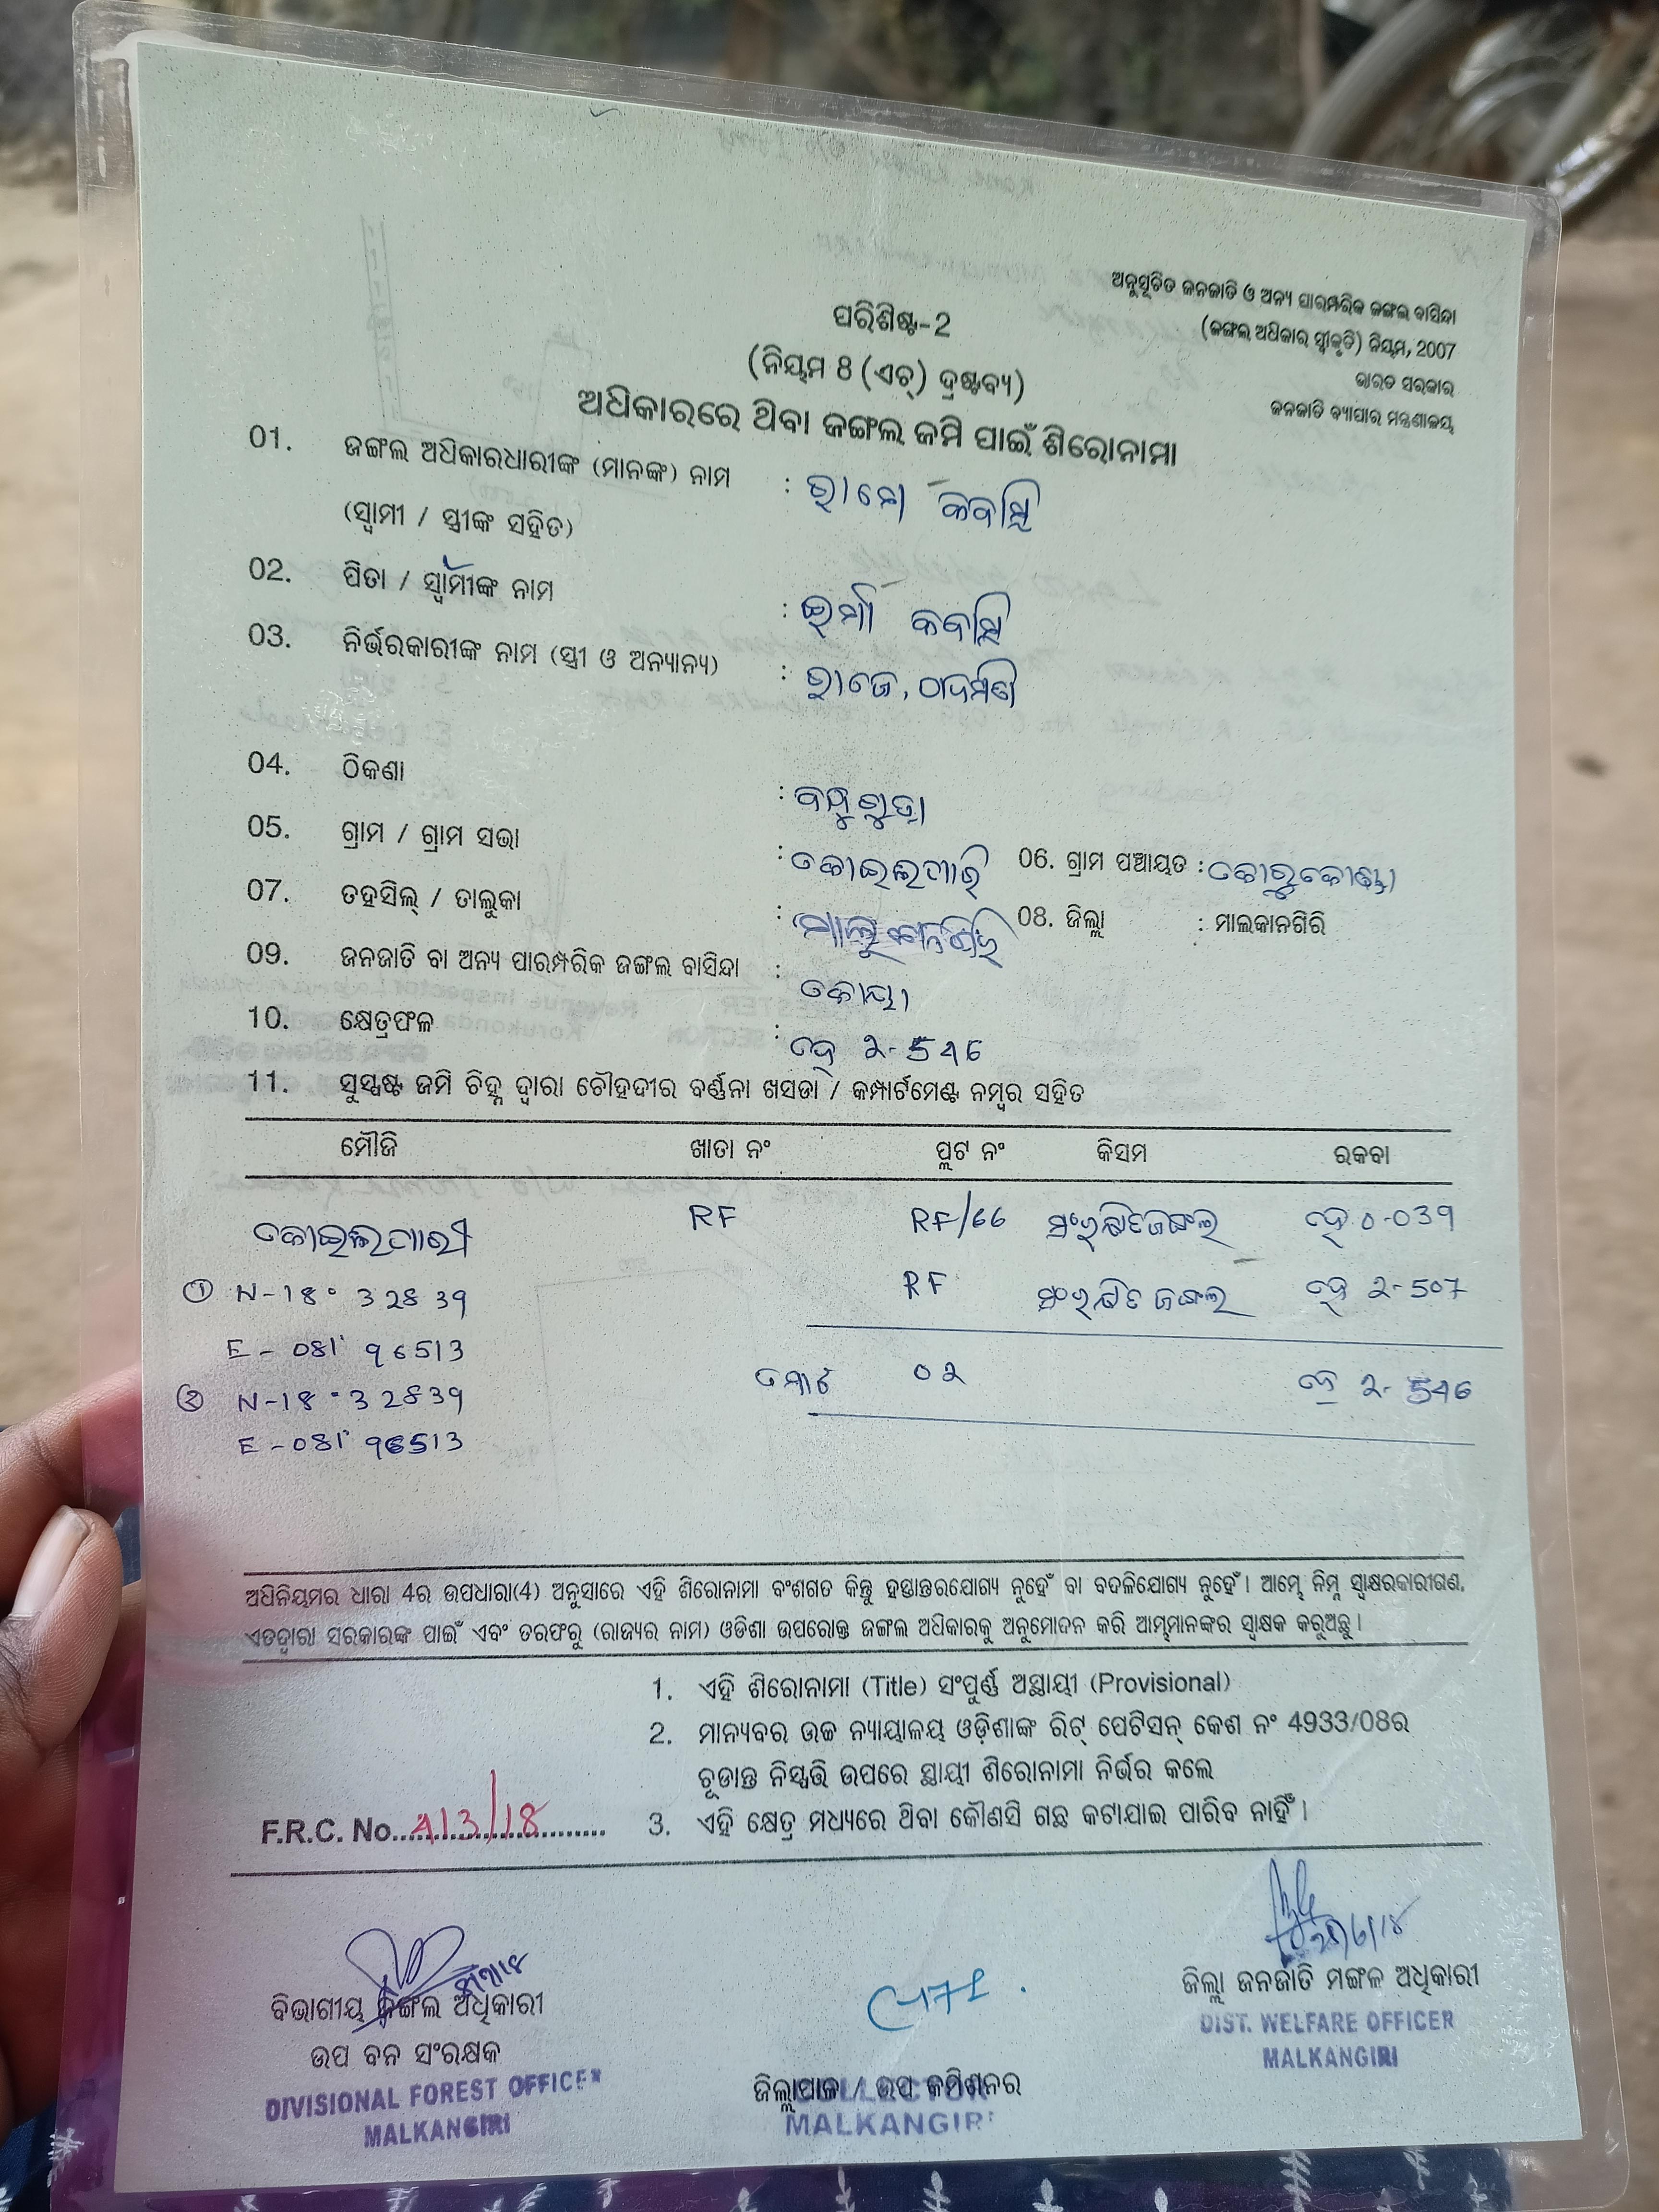 ଅନୁସୂଚିତ ଜନଜାତି ଓ ଅନ୍ୟ ପାରମ୍ପରିକ ଜଙ୍ଗଲ ବାସିନ୍ଦା
(ଜଙ୍ଗଲ ଅଧିକାର ସ୍ୱୀକୃତି) ନିୟମ, 2007
ଭାରତ ସରକାର
ଜନଜାତି ବ୍ୟାପାର ମନ୍ତ୍ରଣାଳୟ
ପରିଶିଷ୍ଟ-2
(ନିୟମ 8 (ଏଚ୍) ଦ୍ରଷ୍ଟବ୍ୟ)
ଅଧିକାରରେ ଥିବା ଜଙ୍ଗଲ ଜମି ପାଇଁ ଶିରୋନାମା
01. ଜଙ୍ଗଲ ଅଧିକାରଧାରୀଙ୍କ (ମାନଙ୍କ) ନାମ : କବାସି
(ସ୍ୱାମୀ / ସ୍ତ୍ରୀଙ୍କ ସହିତ)
02. ପିତା / ସ୍ୱାମୀଙ୍କ ନାମ : ଇର୍ମା କବାସି
03. ନିର୍ଭରକାରୀଙ୍କ ନାମ (ସ୍ତ୍ରୀ ଓ ଅନ୍ୟାନ୍ୟ) :
04. ଠିକଣା :
05. ଗ୍ରାମ / ଗ୍ରାମ ସଭା : କୋଇଲମାରି 06. ଗ୍ରାମ ପଞ୍ଚାୟତ : କୋରୁକୋଣ୍ଡା
07. ତହସିଲ୍ / ତାଲୁକା : 08. ଜିଲ୍ଲା : ମାଲକାନଗିରି
09. ଜନଜାତି ବା ଅନ୍ୟ ପାରମ୍ପରିକ ଜଙ୍ଗଲ ବାସିନ୍ଦା : କୋୟା
10. କ୍ଷେତ୍ରଫଳ : ହେ 2-546
11. ସୁସ୍ପଷ୍ଟ ଜମି ଚିହ୍ନ ଦ୍ୱାରା ଚୌହଦୀର ବର୍ଣ୍ଣନା ଖସଡା / କମ୍ପାର୍ଟମେଣ୍ଟ ନମ୍ବର ସହିତ
ମୌଜି ଖାତା ନଂ ପ୍ଲଟ ନଂ କିସମ ରକବା
କୋଇଲମାରୀ RF RF/66 ସଂରକ୍ଷିତ ଜଙ୍ଗଲ ହେ 0-039
① N-18° 32839 RF ସଂରକ୍ଷିତ ଜଙ୍ଗଲ ହେ 2-507
E - 081° 96513
ମୋଟ 02 ହେ 2-546
② N-18° 32839
E - 081° 96513
ଅଧିନିୟମର ଧାରା 4ର ଉପଧାରା(4) ଅନୁସାରେ ଏହି ଶିରୋନାମା ବଂଶଗତ କିନ୍ତୁ ହସ୍ତାନ୍ତରଯୋଗ୍ୟ ନୁହେଁ ବା ବଦଳିଯୋଗ୍ୟ ନୁହେଁ। ଆମ୍ଭେ ନିମ୍ନ ସ୍ୱାକ୍ଷରକାରୀଗଣ,
ଏତଦ୍ୱାରା ସରକାରଙ୍କ ପାଇଁ ଏବଂ ତରଫରୁ (ରାଜ୍ୟର ନାମ) ଓଡିଶା ଉପରୋକ୍ତ ଜଙ୍ଗଲ ଅଧିକାରକୁ ଅନୁମୋଦନ କରି ଆମ୍ଭମାନଙ୍କର ସ୍ୱାକ୍ଷକ କରୁଅଛୁ।
1. ଏହି ଶିରୋନାମା (Title) ସଂପୂର୍ଣ୍ଣ ଅସ୍ଥାୟୀ (Provisional)
2. ମାନ୍ୟବର ଉଚ୍ଚ ନ୍ୟାୟାଳୟ ଓଡ଼ିଶାଙ୍କ ରିଟ୍ ପେଟିସନ୍ କେଶ ନଂ 4933/08ର
ଚୂଡାନ୍ତ ନିସ୍ପତ୍ତି ଉପରେ ସ୍ଥାୟୀ ଶିରୋନାମା ନିର୍ଭର କଲେ
3. ଏହି କ୍ଷେତ୍ର ମଧ୍ୟରେ ଥିବା କୌଣସି ଗଛ କଟାଯାଇ ପାରିବ ନାହିଁ।
F.R.C. No. A13/18
ବିଭାଗୀୟ ଜଙ୍ଗଲ ଅଧିକାରୀ
ଉପ ବନ ସଂରକ୍ଷକ
DIVISIONAL FOREST OFFICER
MALKANGIRI
ଜିଲ୍ଲାପାଳ / ଉପ କମିଶନର
COLLECTOR
MALKANGIRI
ଜିଲ୍ଲା ଜନଜାତି ମଙ୍ଗଳ ଅଧିକାରୀ
DIST. WELFARE OFFICER
MALKANGIRI